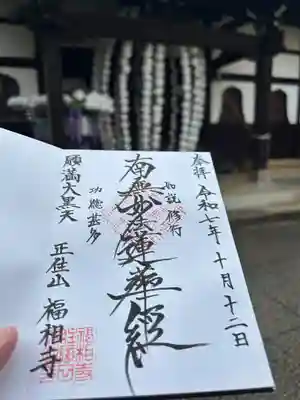 奉拝 令和七年十月十二日
如説修行
南無妙法蓮華経
功徳甚多
願満大黒天
正住山 福相寺